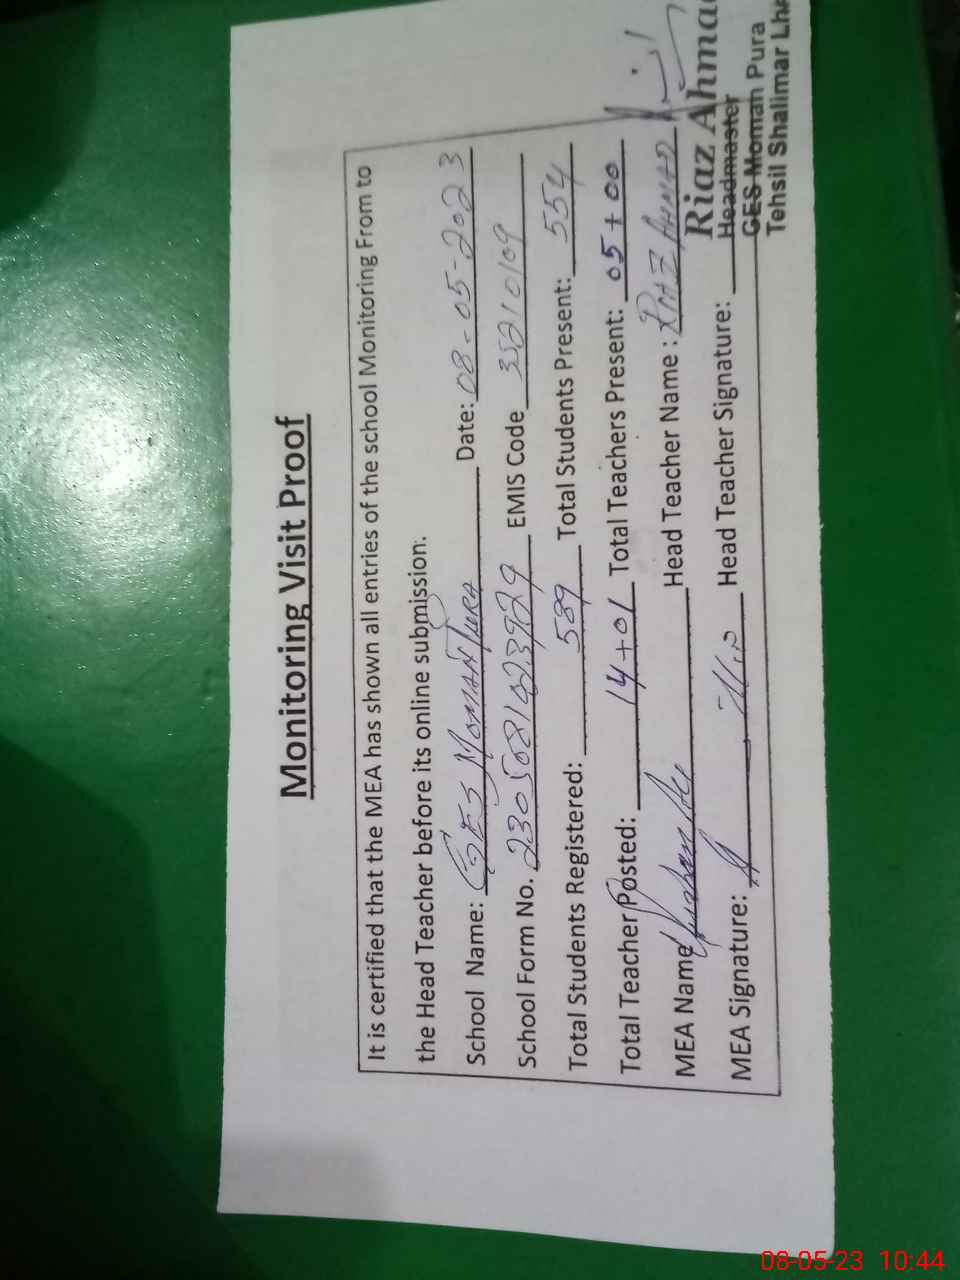 Monitoring Visit Proof
It is certified that the MEA has shown all entries of the school Monitoring From to
the Head Teacher before its online submission.
School Name: GES MOMAN PURA Date: 08-05-2023
School Form No. EMIS Code 35210109
Total Students Registered: 589 Total Students Present: 554
Total Teacher Posted: 14+01 Total Teachers Present: 05+00
MEA Name Head Teacher Name: RIAZ AHMAD
MEA Signature: Head Teacher Signature:
Riaz Ahmad
Headmaster
GES Moman Pura
Tehsil Shalimar Lhr
08-05-23 10:44